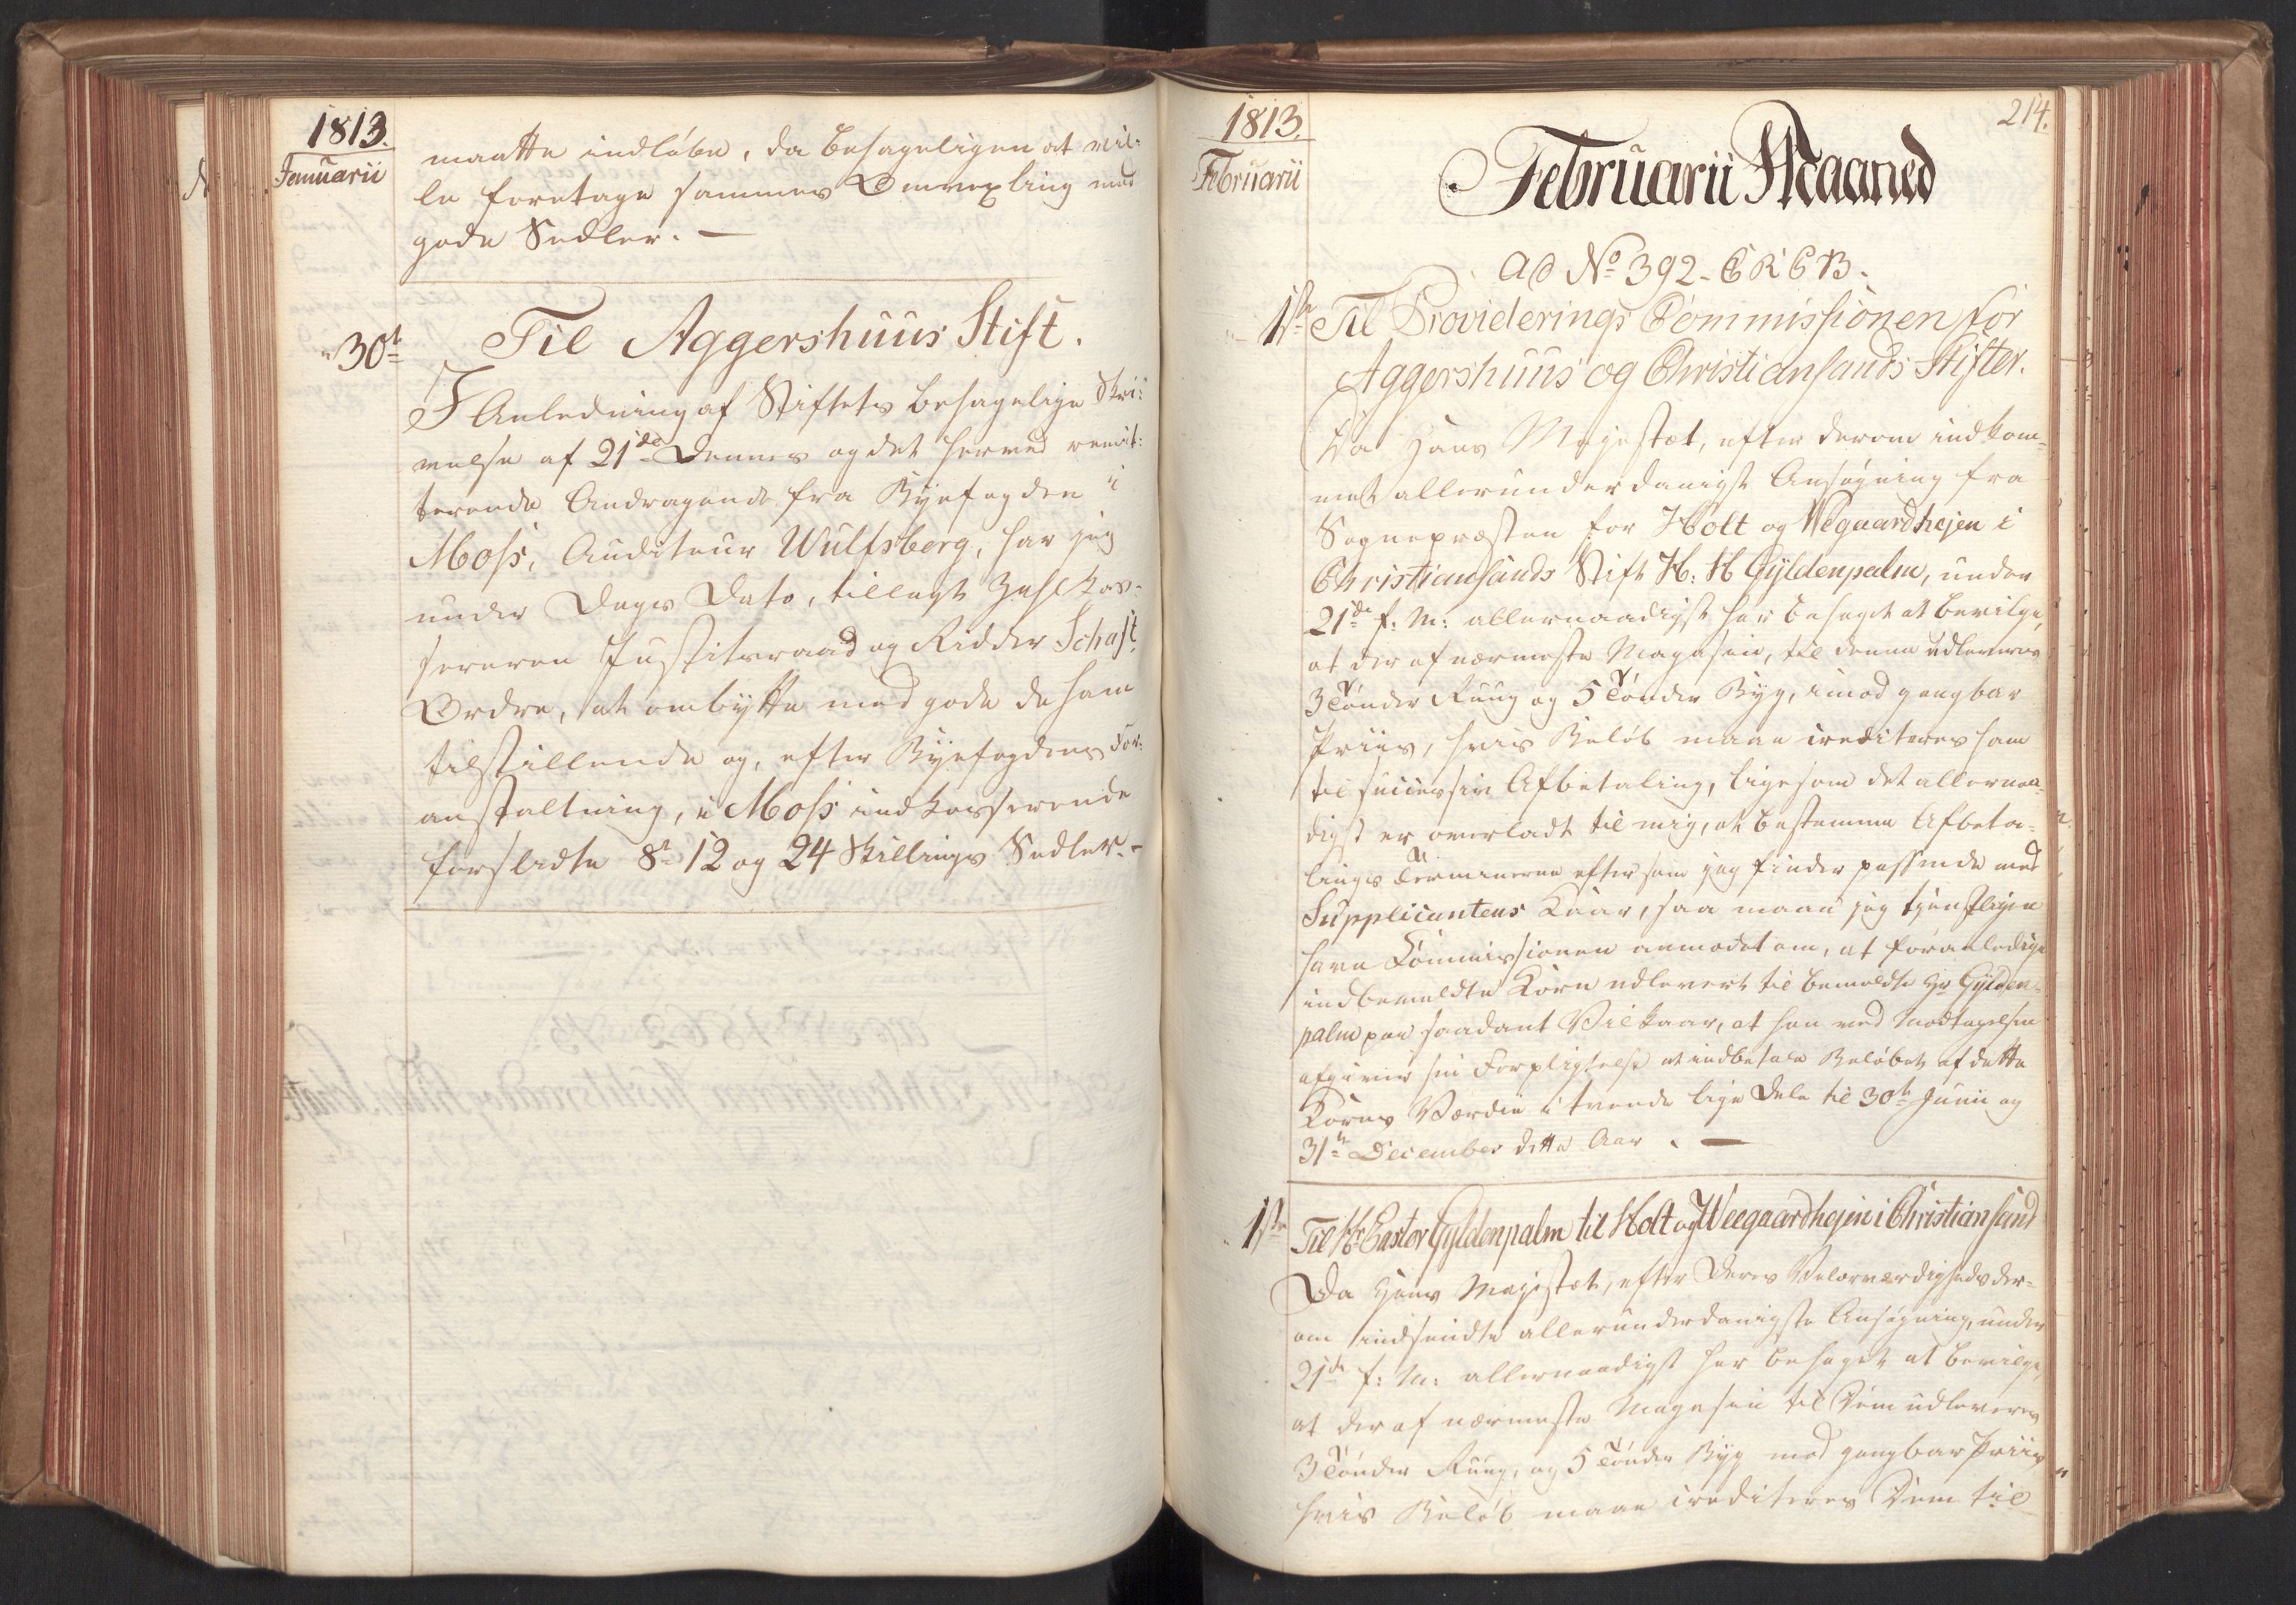 1813.
Januarii
maatte indløbe, da behageligen at vil-
le foretage sammes Omvexling med
gode Sedler. —
30te
Til Aggershuus Stift.
I Anledning af Stiftets behagelige Skri-
velse af 21de Dennes og det herved remit-
terende Andragende fra Byefogden i
Moss, Auditeur Wulfsberg, har jeg
under Dags Dato, tillagt Zahlkas-
sereren Justitsraad og Ridder Schaft
Ordre, at ombytte med gode de ham
tilstillende og, efter Byefogdens For-
anstaltning, i Moss indkasserende
forslidte 8te 12 og 24 Skillings Sedler. -
1813.
Februarii
214.
Februarii Maaned
ad No 392 - CRCB.
1ste
Til Provideerings Commissionen for
Aggershuus og Christiansands Stifter.
Da Hans Majestæt, efter derom indkom-
met allerunderdanigst Ansøgning fra
Sognepræsten for Holt og Wegaardhejen i
Christiansands Stift H: H Gyldenpalm, under
21de f: M: allernaadigst har behaget at bevilge,
at der af nærmeste Magasin, til denne udleveres
3 Tønder Ruug og 5 Tønder Byg, imod gangbar
Priis, hvis Beløb maae crediteres ham
til successiv Afbetaling, ligesom det allernaa-
digst er overladt til mig, at bestemme Afbeta-
lings Terminerne eftersom jeg finder passende med
Supplicantens Kaar, saa maae jeg tjenstligen
have Commissionen anmodet om, at foranledige
indbemeldte Korn udlevert til bemeldte Hr Gylden-
palm paa saadant Vilkaar, at han ved Modtagelsen
afgiver sin Forpligtelse at indbetale Beløbet af dette
Korns Værdie i tvende lige Dele til 30te Junii og
31te December dette Aar. —
1ste
Til Hr Pastor Gyldenpalm til Holt og Weegaardhejen i Christiansand
Da Hans Majestæt, efter Deres Velærværdigheds der-
om indsendte allerunderdanigste Ansøgning, under
21de f: M: allernaadigst har behaget at bevilge,
at der af nærmeste Magasin til Dem udleveres
3 Tønder Ruug, og 5 Tønder Byg mod gangbar Priis
hvis Beløb maae crediteres Dem til